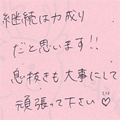 継続は力成り
だと思います!!
息抜きも大事にして
頑張って下さい♡